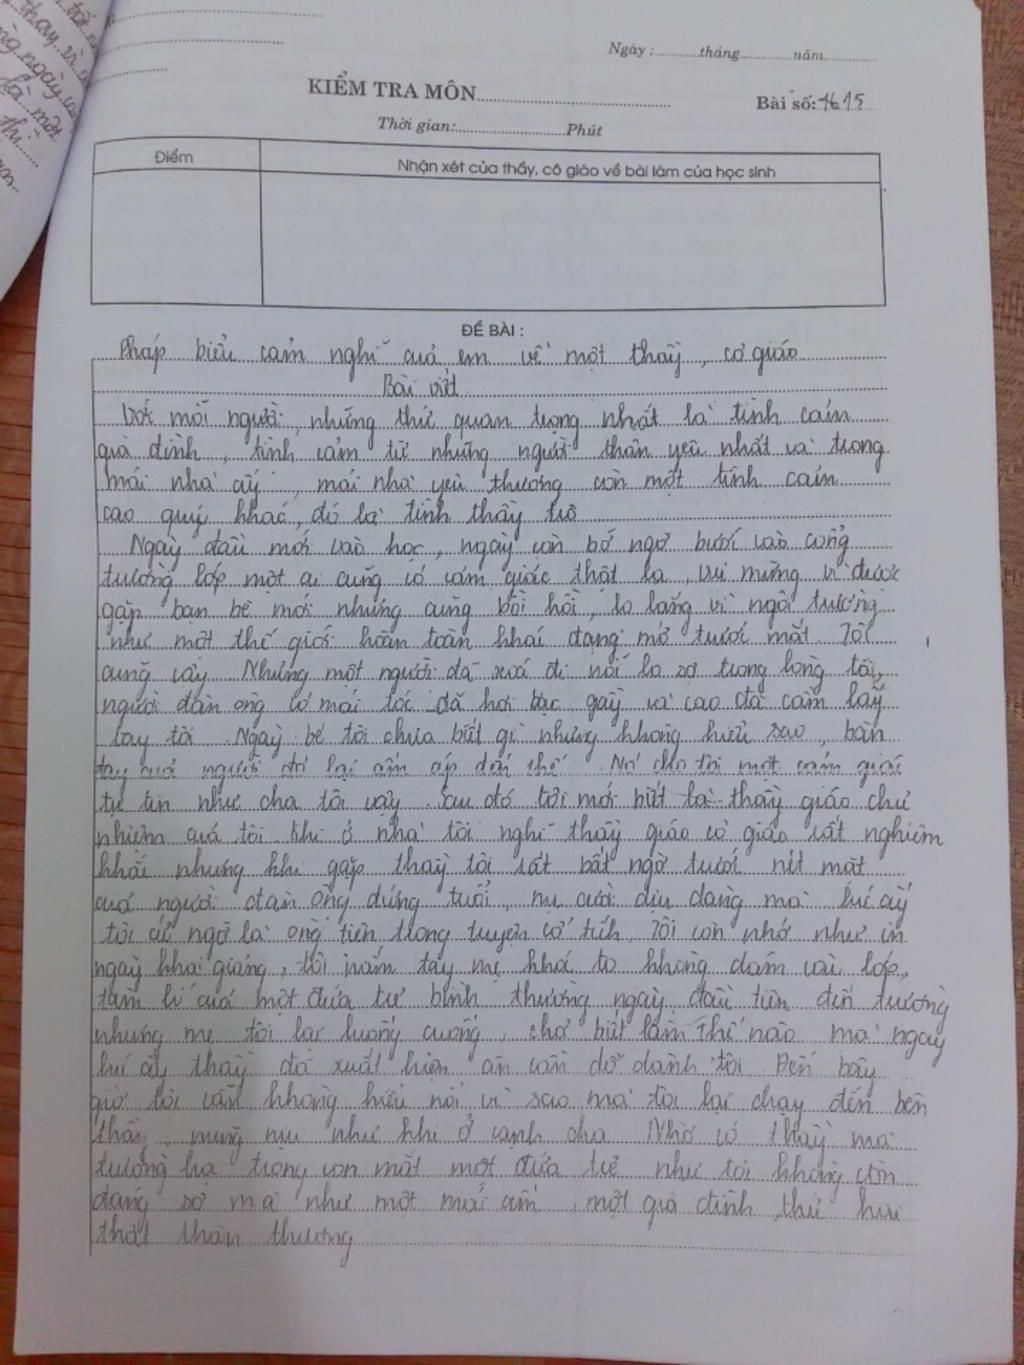 Ngày :.........tháng............năm............
KIỂM TRA MÔN
Bài số: 15
Thời gian:........................Phút
Điểm
Nhận xét của thầy, cô giáo về bài làm của học sinh
ĐỀ BÀI :
Pháp biểu cảm nghĩ củả em về một thầy, cô giáo
Bài viết
Với mỗi người, những thứ quan trọng nhất là tình cảm
gia đình, tình cảm từ những người thân yêu nhất và trong
mái nhà ấy, mái nhà yêu thương còn một tình cảm
cao quý khác, đó là tình thầy trò
Ngày đầu mới vào học, ngày còn bỡ ngỡ bước vào cổng
trường lớp một ai cũng có cảm giác thật lạ, vui mừng vì được
gặp bạn bè mới nhưng cũng bồi hồi, lo lắng vì ngôi trường
như một thế giới hoàn toàn khác đang mở trước mắt. Tôi
cũng vậy. Nhưng một người đã xoá đi nỗi lo sợ trong lòng tôi,
người đàn ông có mái tóc đã hơi bạc gầy và cao đã cầm lấy
tay tôi. Ngày bé tôi chưa biết gì nhưng không hiểu sao, bàn
tay củả người đó lại ấm áp đến thế. Nó cho tôi một cảm giác
tự tin như cha tôi vậy. Sau đó tôi mới biết là thầy giáo chủ
nhiệm của tôi. Khi ở nhà tôi nghĩ thầy giáo cô giáo rất nghiêm
khắc nhưng khi gặp thầy tôi rất bất ngờ trước nét mặt
của người đàn ông đứng tuổi, nụ cười dịu dàng mà lúc ấy
tôi cứ ngỡ là ông tiên trong truyện cổ tích. Tôi còn nhớ như in
ngày khai giảng, tôi nắm tay mẹ khóc to không dám vào lớp,
tâm lí của một đứa trẻ bình thường ngày đầu tiên đến trường
nhưng mẹ tôi lại luống cuống, chả biết làm thế nào mà ngay
lúc ấy thầy đã xuất hiện ân cần dỗ dành tôi. Đến bây
giờ tôi vẫn không hiểu nổi vì sao mà tôi lại chạy đến bên
thầy, nũng nịu như khi ở cạnh cha. Nhờ có thầy mà
trường lạ trong con mắt một đứa trẻ như tôi không còn
đáng sợ mà như một mái ấm, một gia đình thứ hai
thật thân thương